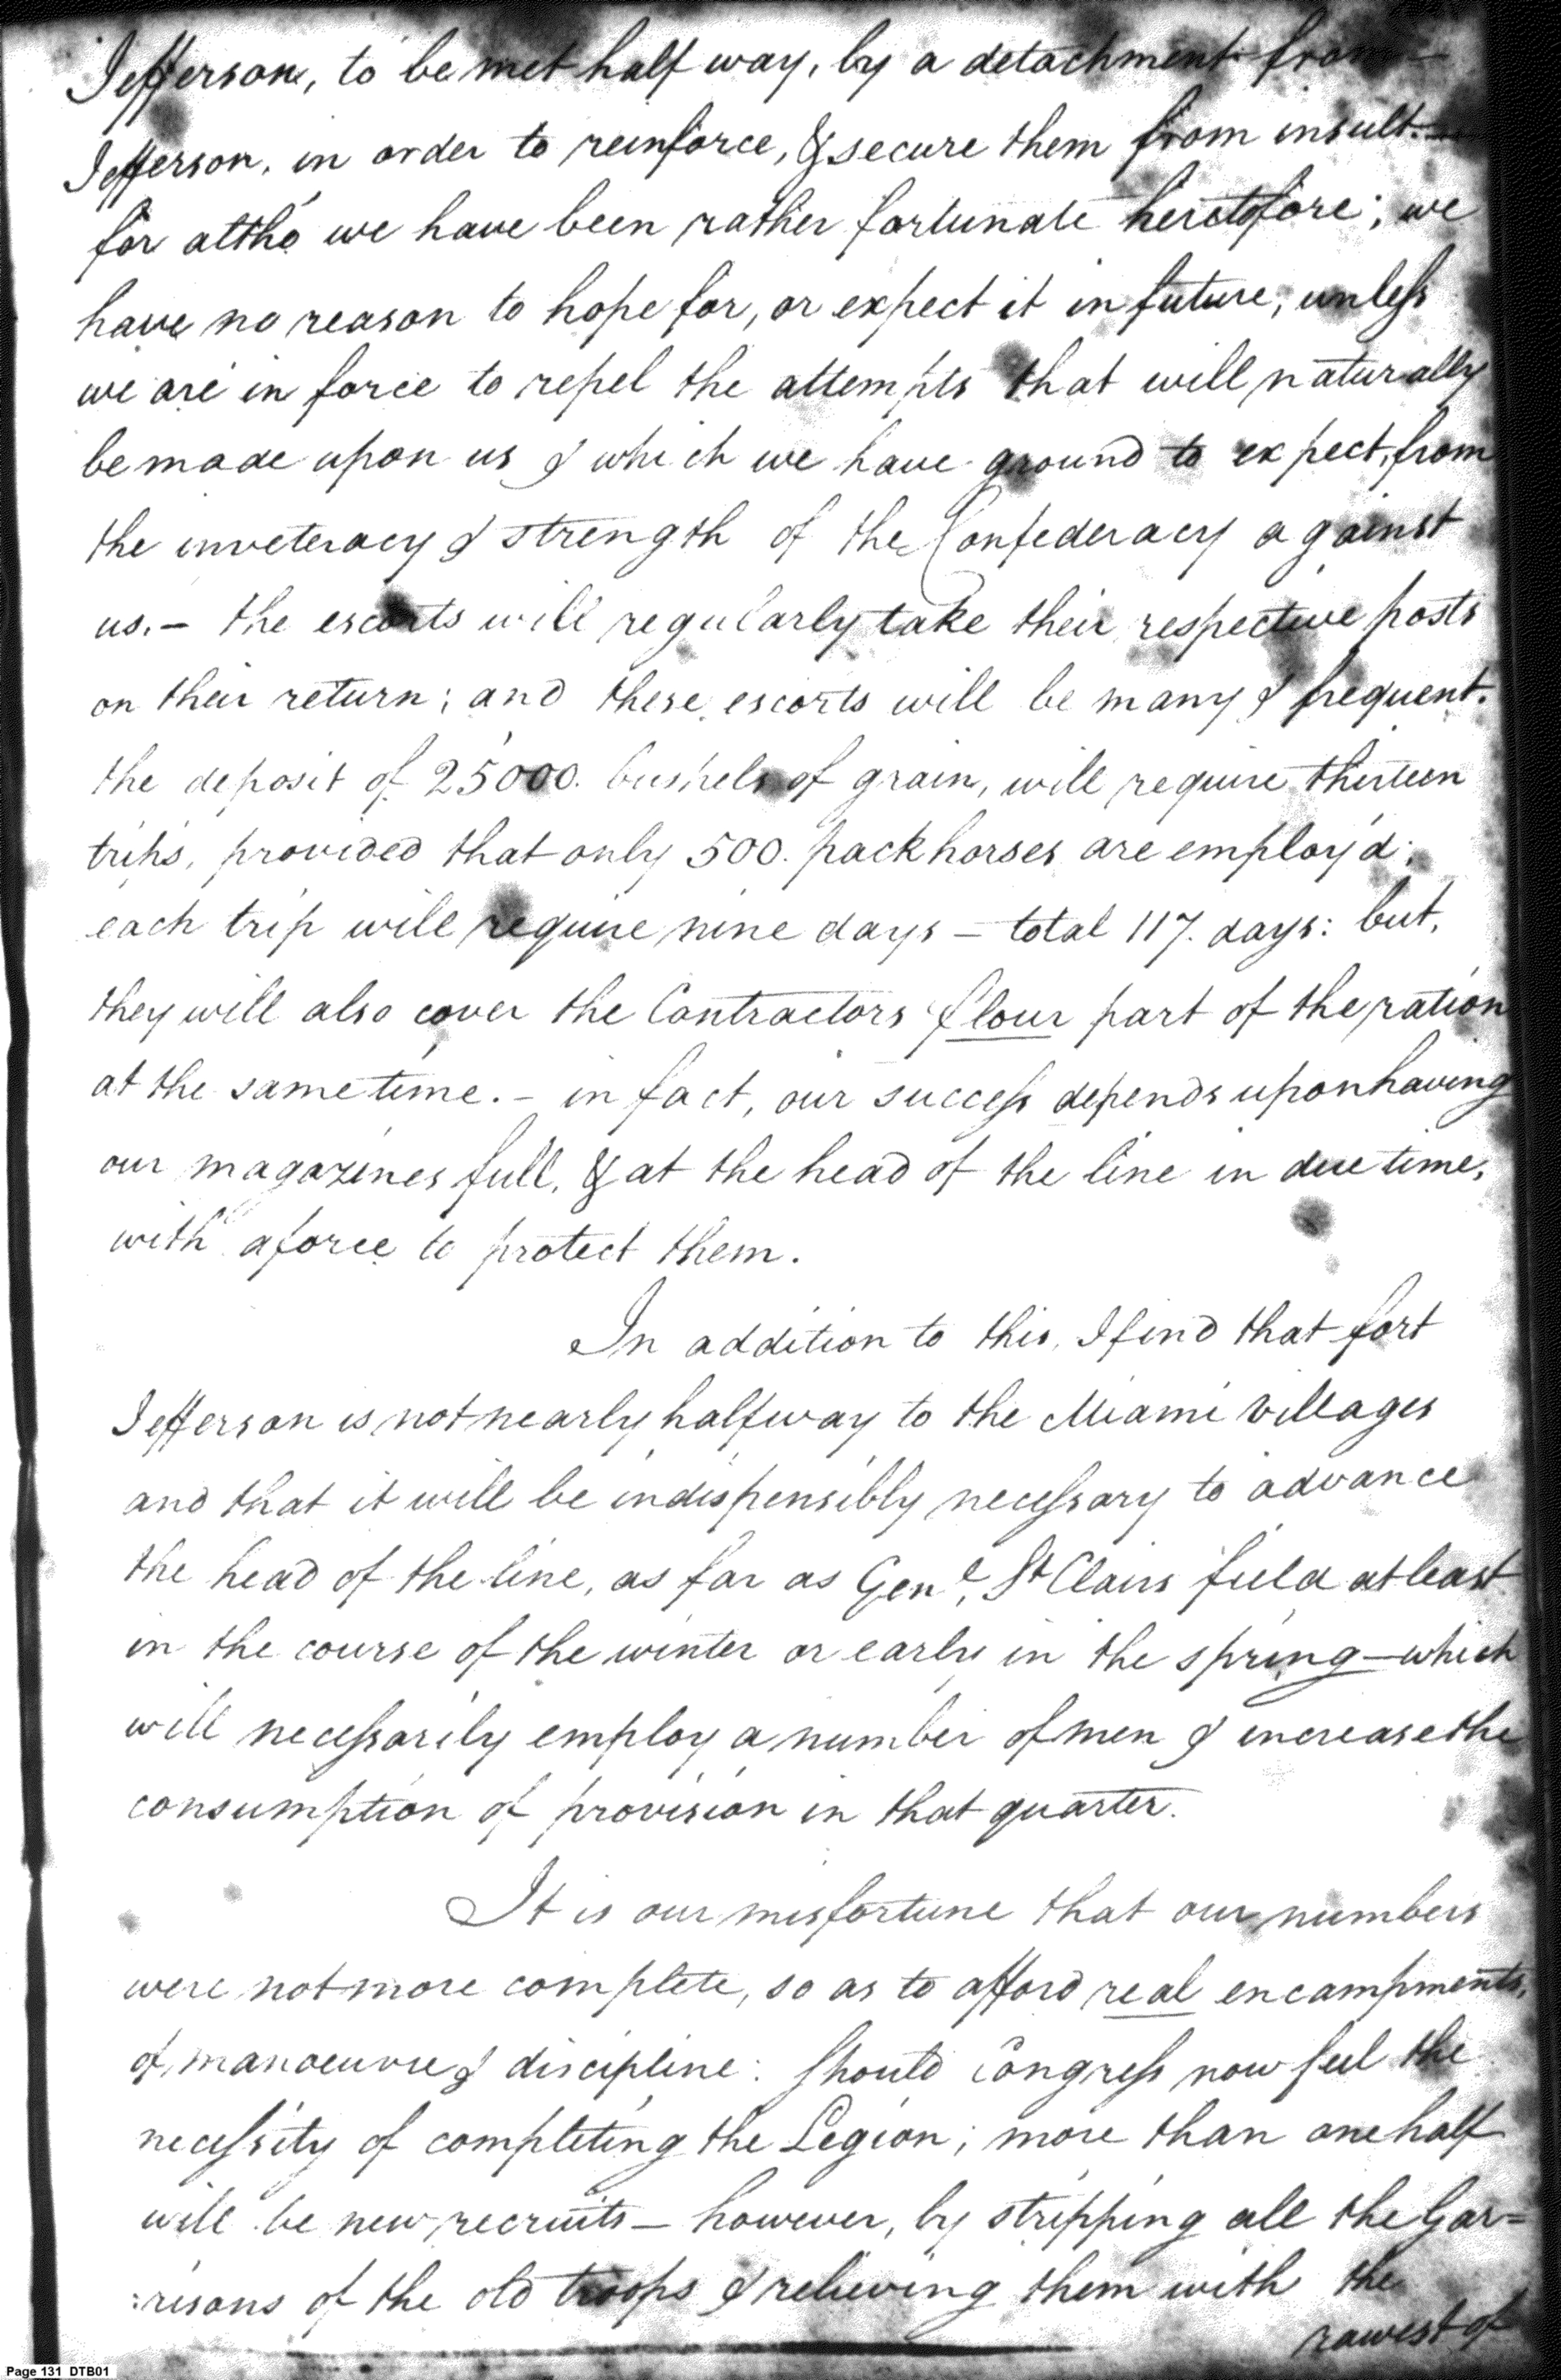 Jefferson, to be met half way, by a detachment from—
Jefferson, in order to reinforce, & secure them from insult.—
for altho' we have been rather fortunate heretofore; we
have no reason to hope for, or expect it in future, unless
we are in force to repel the attempts that will naturally
be made upon us & which we have ground to expect, from
the inveteracy & strength of the Confederacy against
us.— the escorts will regularly take their respective posts
on their return; and these escorts will be many & frequent.
the deposit of 25000. bushels of grain, will require thirteen
trips, provided that only 500. packhorses are employ'd;
each trip will require nine days — total 117. days: but,
they will also cover the Contractors flour part of the ration
at the same time. — in fact, our success depends upon having
our magazines full, & at the head of the line in due time,
with a force to protect them.
In addition to this, I find that fort
Jefferson is not nearly halfway to the Miami Villages
and that it will be indispensibly necessary to advance
the head of the line, as far as Genl. St Clairs field at least
in the course of the winter or early in the spring — which
will necessarily employ a number of men & increase the
consumption of provision in that quarter.
It is our misfortune that our numbers
were not more complete, so as to afford real encampments,
of manoeuvre & discipline: Should Congress now feel the
necessity of completing the Legion; more than one half
will be new recruits — however, by stripping all the Gar=
:risons of the old troops & relieving them with the
rawest of
Page 131 DTB01